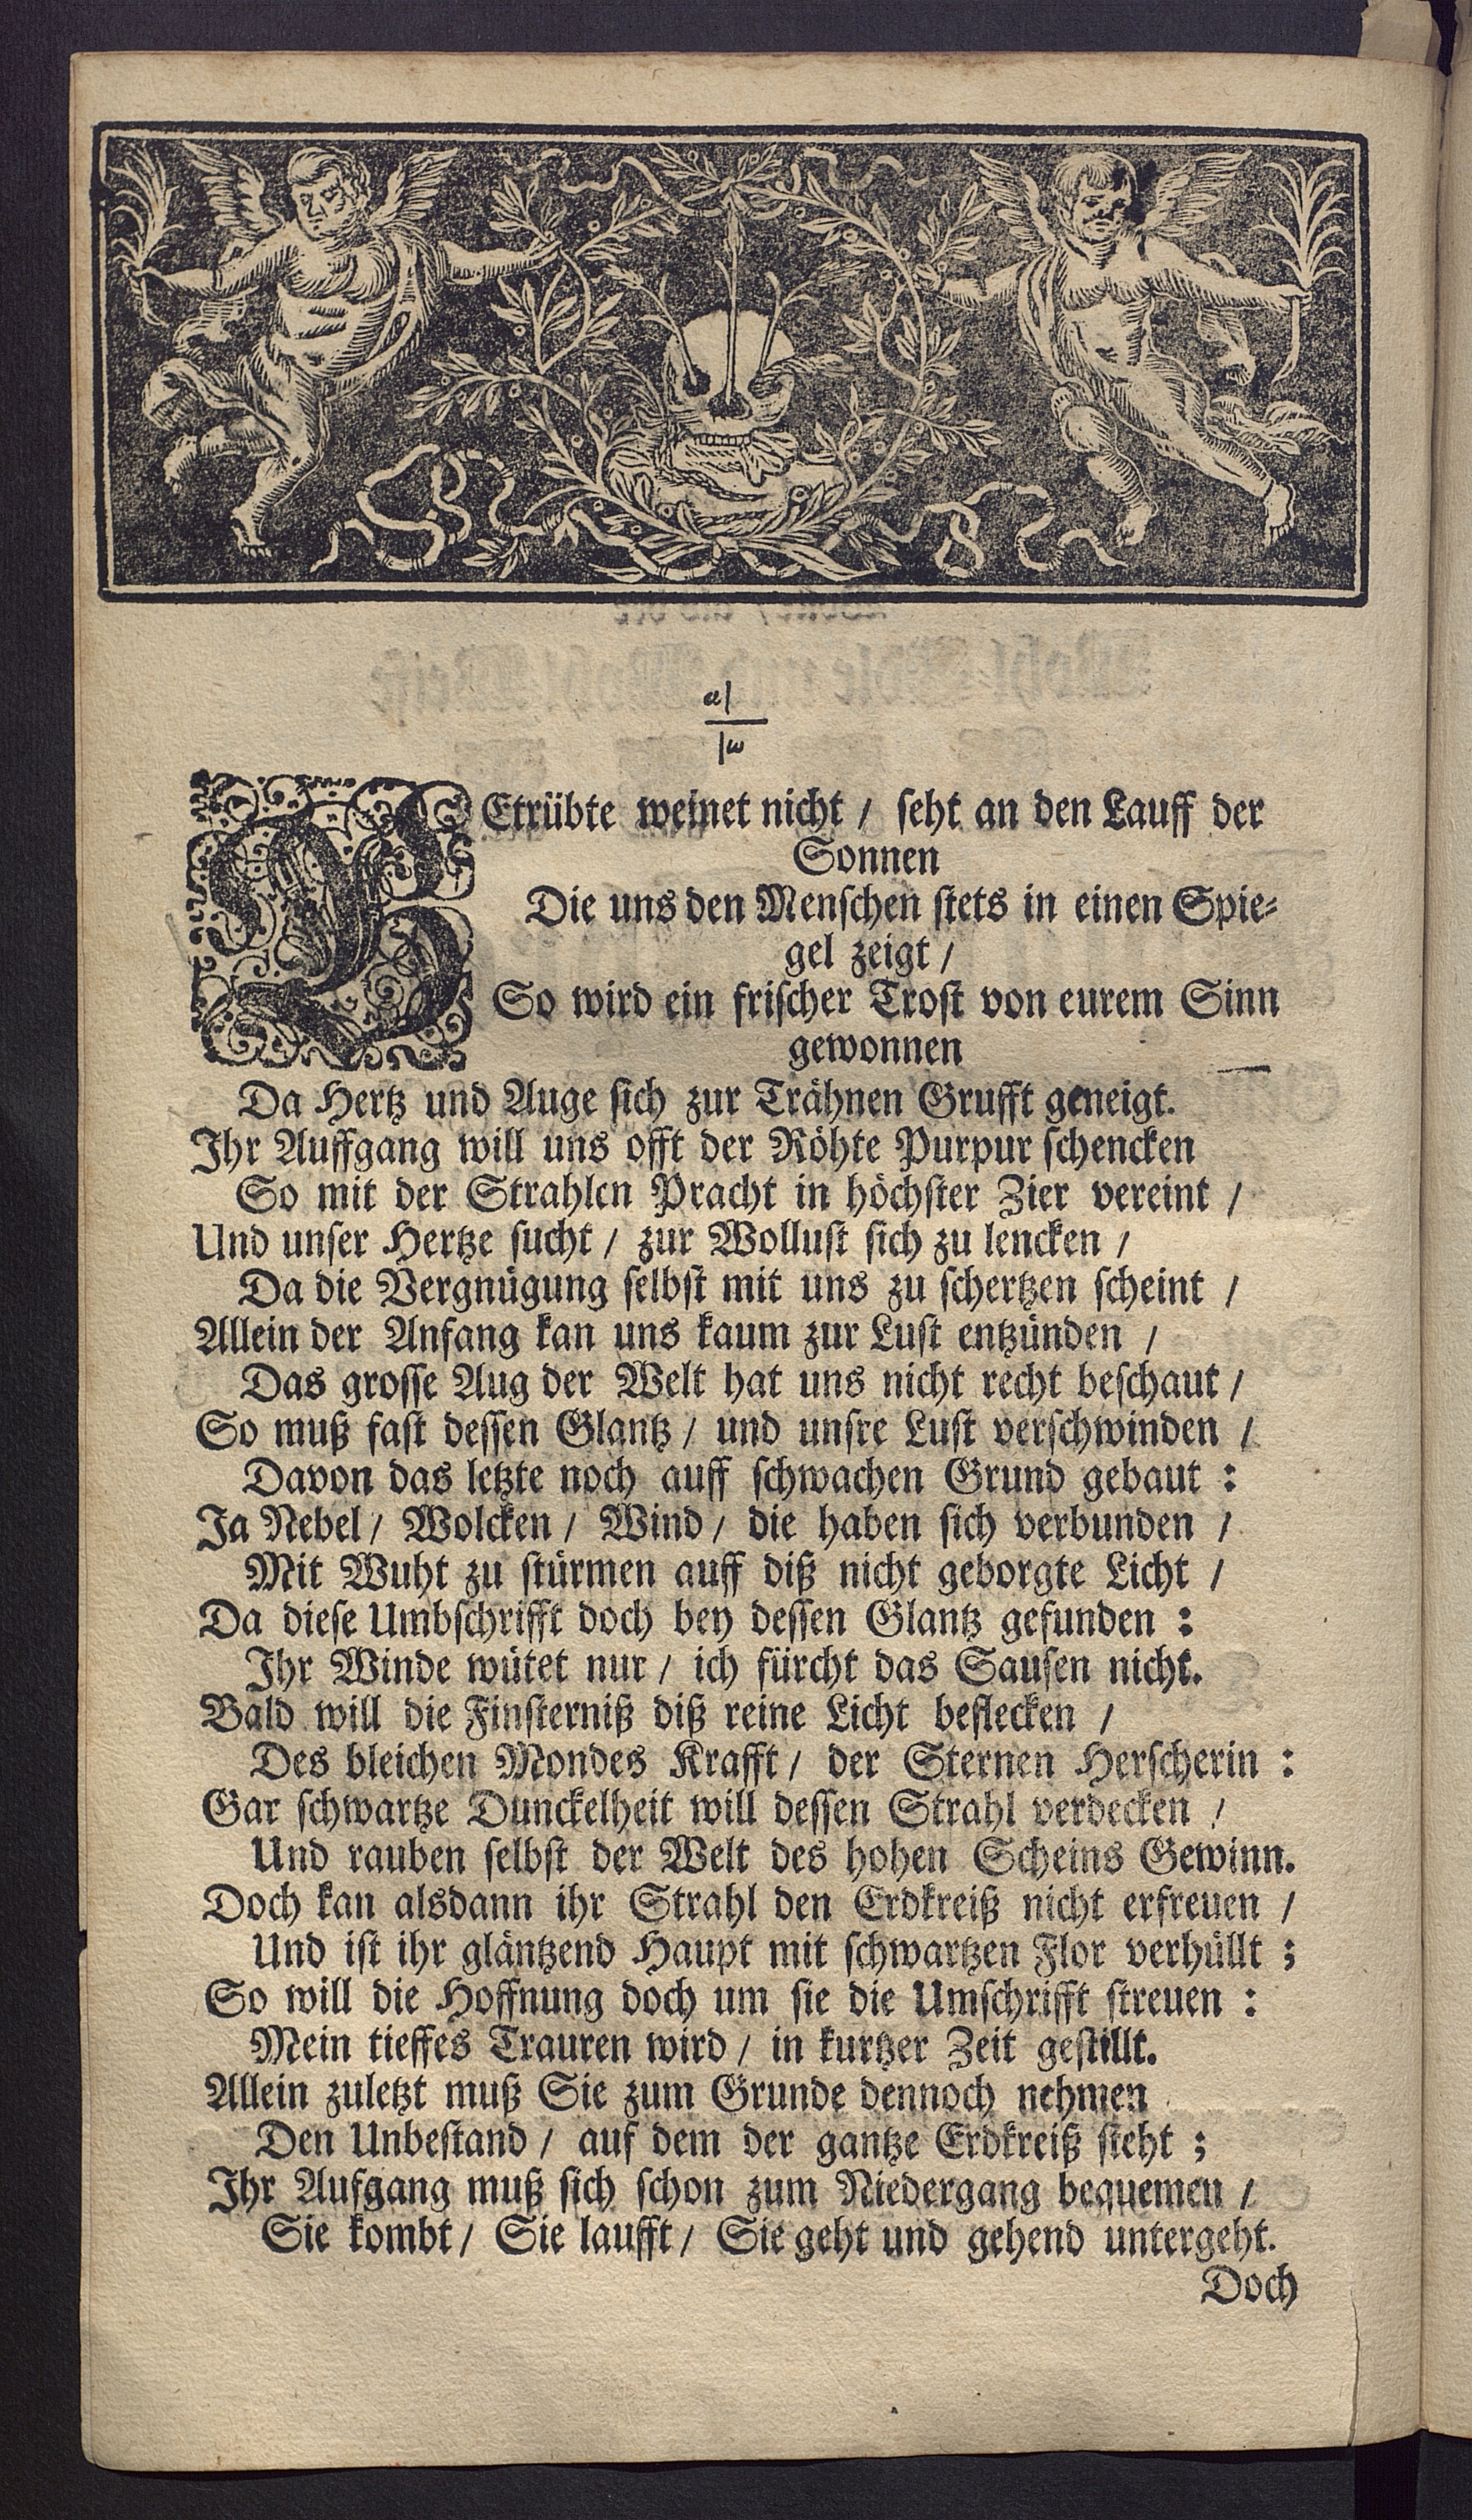 BEtrübte weinet nicht / seht an den Lauff der
Sonnen
Die uns den Menschen stets in einen Spie-
gel zeigt /
So wird ein frischer Trost von eurem Sinn
gewonnen
Da Hertz und Auge sich zur Trähnen Grufft geneigt.
Ihr Auffgang will uns offt der Röhte Purpur schencken
So mit der Strahlen Pracht in höchster Zier vereint /
Und unser Hertze sucht / zur Wollust sich zu lencken /
Da die Vergnügung selbst mit uns zu schertzen scheint /
Allein der Anfang kan uns kaum zur Lust entzünden /
Das grosse Aug der Welt hat uns nicht recht beschaut /
So muß fast dessen Glantz / und unsre Lust verschwinden /
Davon das letzte noch auff schwachen Grund gebaut :
Ja Nebel / Wolcken / Wind / die haben sich verbunden /
Mit Wuht zu stürmen auff diß nicht geborgte Licht /
Da diese Umbschrifft doch bey dessen Glantz gefunden :
Ihr Winde wütet nur / ich fürcht das Sausen nicht.
Bald will die Finsterniß diß reine Licht beflecken /
Des bleichen Mondes Krafft / der Sternen Herscherin :
Gar schwartze Dunckelheit will dessen Strahl verdecken /
Und rauben selbst der Welt des hohen Scheins Gewinn.
Doch kan alsdann ihr Strahl den Erdkreiß nicht erfreuen /
Und ist ihr gläntzend Haupt mit schwartzen Flor verhüllt ;
So will die Hoffnung doch um sie die Umschrifft streuen :
Mein tieffes Trauren wird / in kurtzer Zeit gestillt.
Allein zuletzt muß Sie zum Grunde dennoch nehmen
Den Unbestand / auf dem der gantze Erdkreiß steht ;
Ihr Aufgang muß sich schon zum Niedergang bequemen /
Sie kombt / Sie laufft / Sie geht und gehend untergeht.
Doch